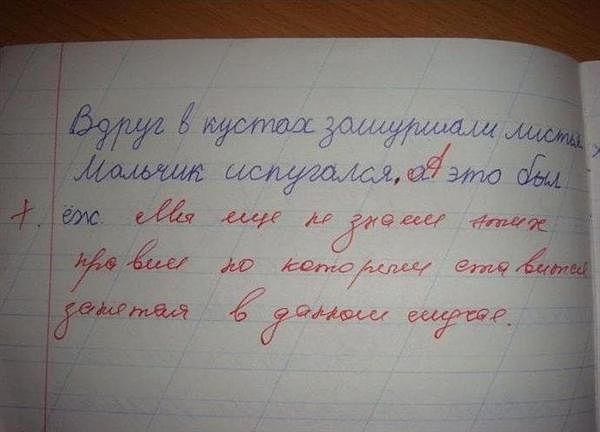 Вдруг в кустах зашуршали листья.
Мальчик испугался. аА это был
+. ёж. Мы еще не знаем этих
правил по которым ставится
запятая в данном случае.